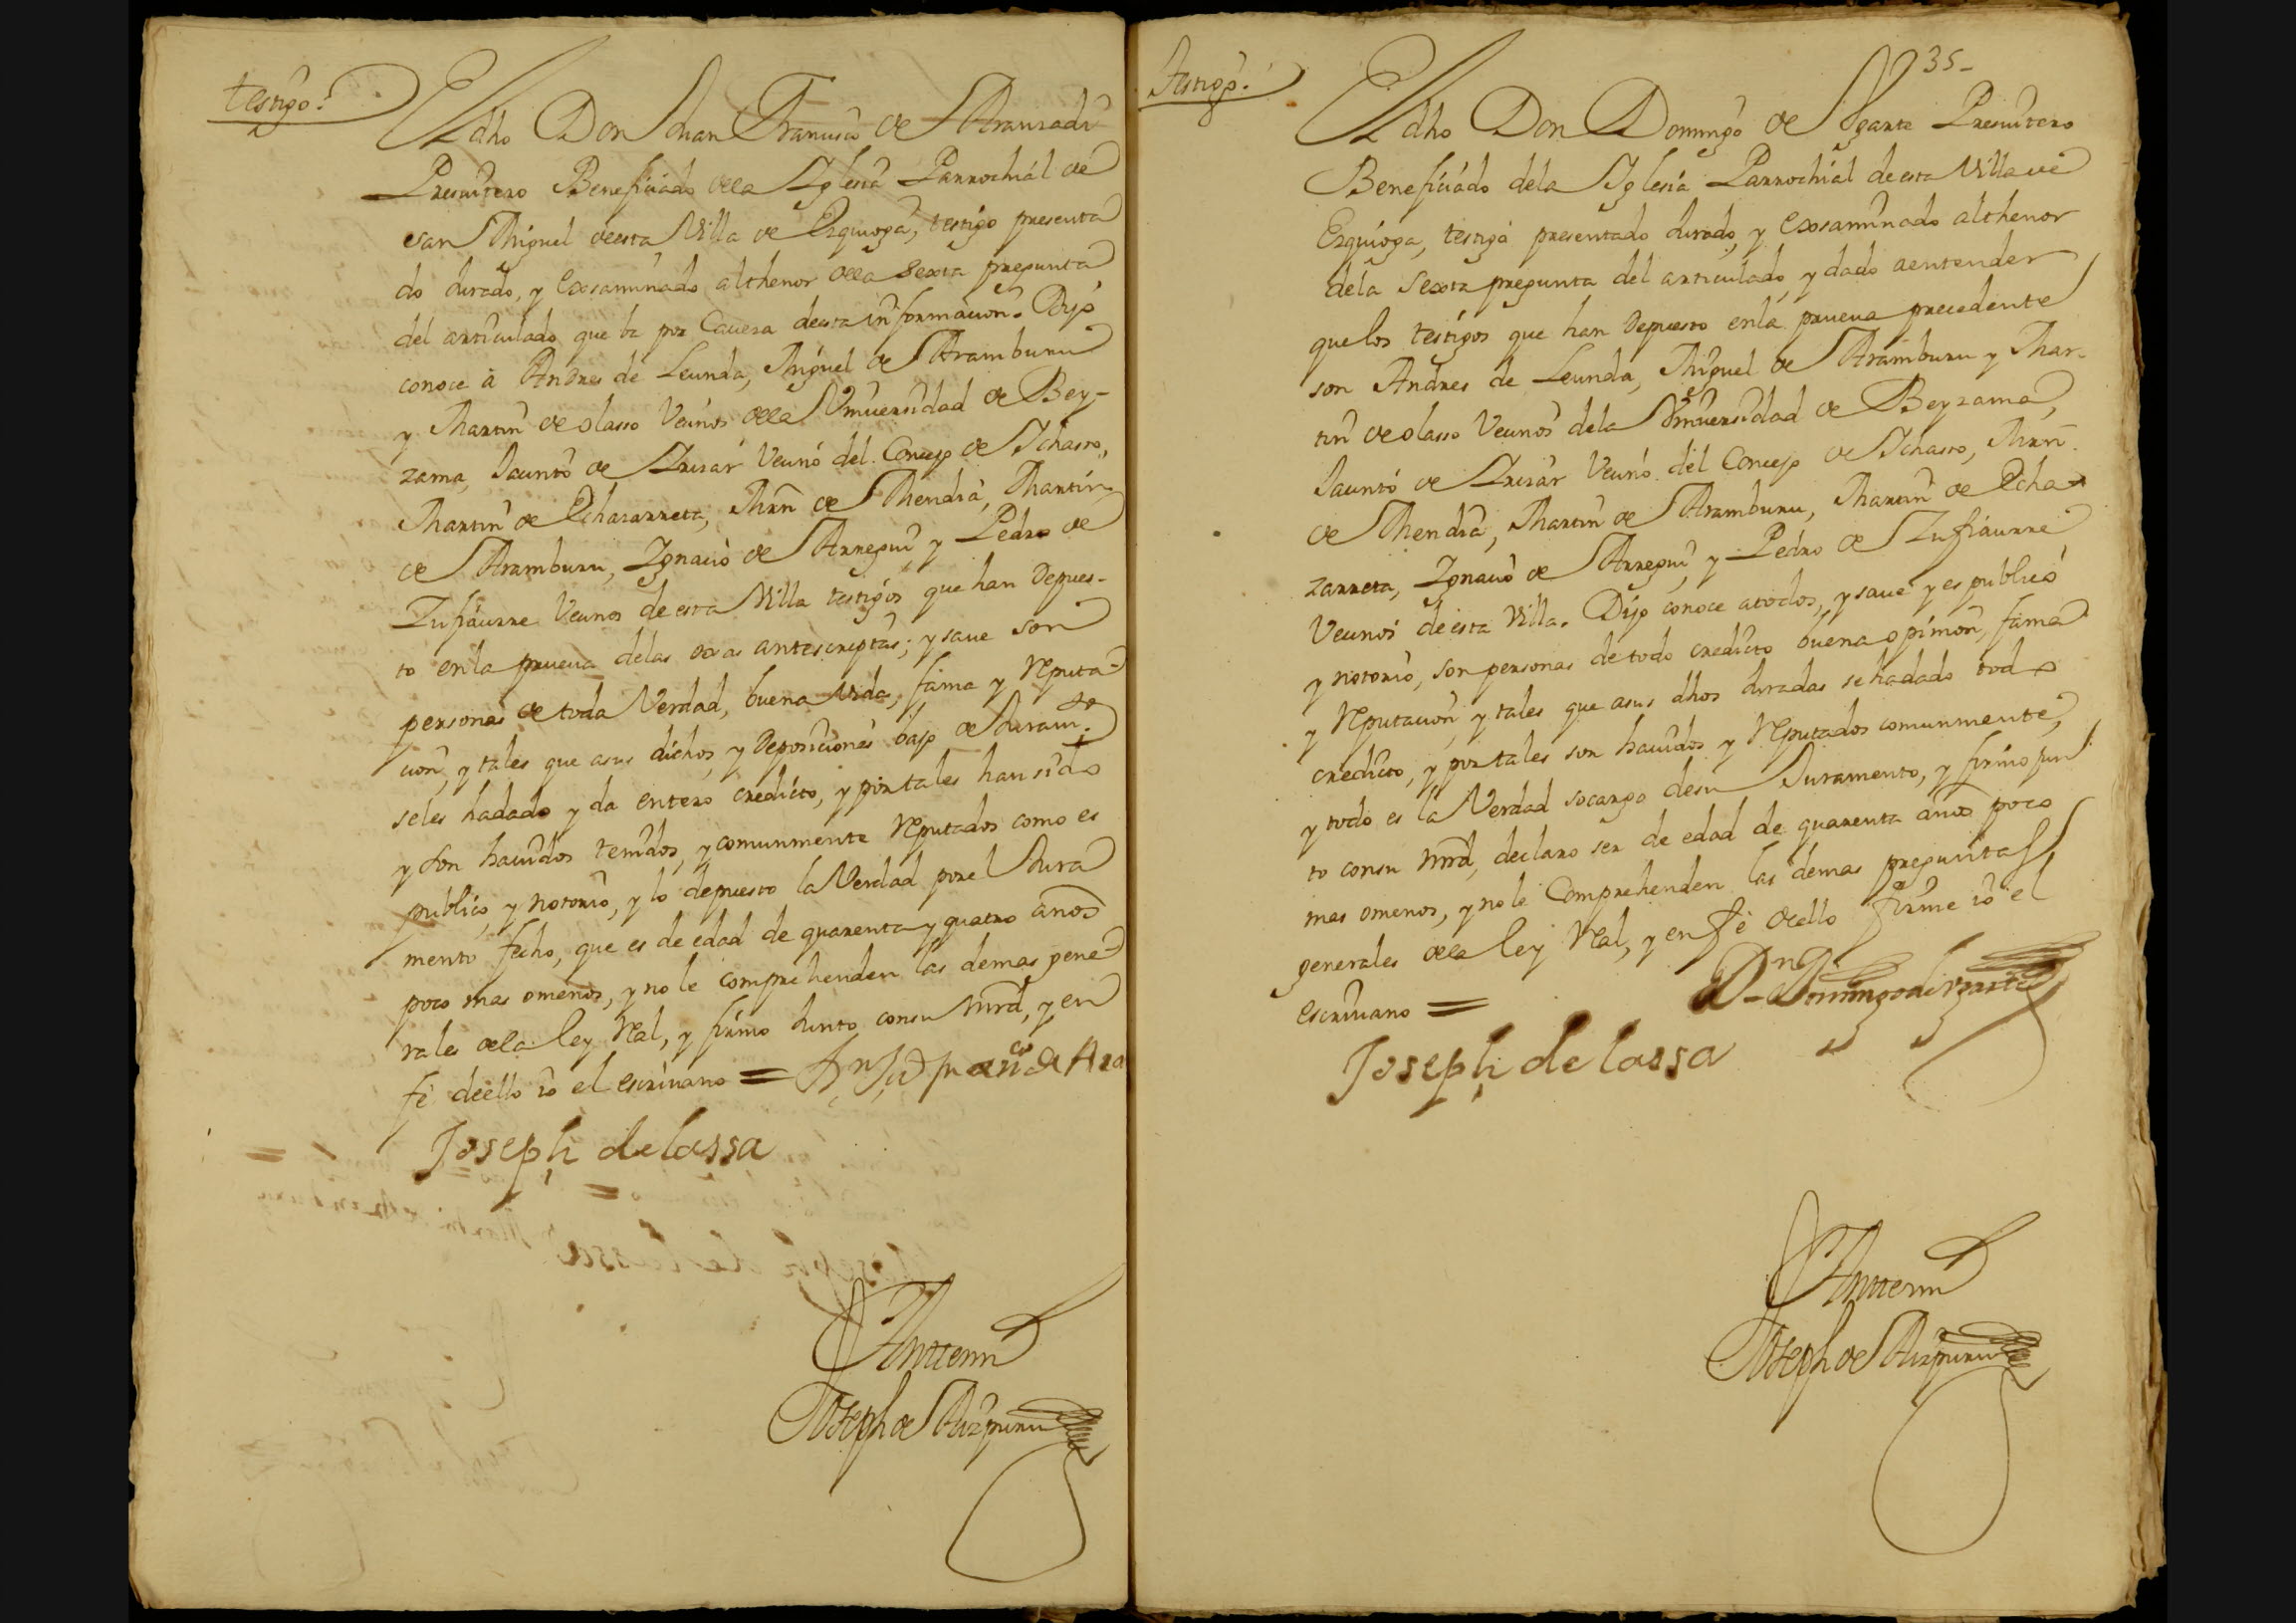 testigo.
El dho Don Juan Franciscо de Aranzadi
Presvitero Beneficiado dela Iglesia Parrochial de
san Miguel deesta Villa de Ezquioga, testigo presenta
do Jurado, y Exsaminado althenor dela sexta pregunta
del articulado que ba por Caveza deesta informacion. Dijo
conoce à Andres de Leunda, Miguel de Aramburu
y Martin de olasso Vecinos dela Universidad de Bey-
zama, Jacinto de Irizàr Vecino del Concejo de Ichasso,
Martin de Echazarreta, Mrn de Mendia, Martin
de Aramburu, Ignacio de Arregui, y Pedro de
Zufiaurre Vecinos de esta Villa testigos que han Depues-
to en la prueva delas oxas antescriptas; y save son
personas de toda Verdad, buena vida, fama y Reputa-
cion, y tales que asus dichos, y Deposiciones bajo de Juramto
seles hadado y da entero credicto, y por tales han sido
y son havidos tenidos, y comunmente Reputados como es
publico, y notorio, y lo depuesto la Verdad por el Jura
mento fecho, que es de edad de quarenta y quatro años
poco mas omenos, y no le comprehenden las demas gene
rales dela ley Real, y firmo Junto con su Mrd, y en
fè deello io el escrivano =
Joseph de lassa
Antemi
Joseph de Aizpuru
35-
Testigo.
El dho Don Domingo de Ugarte Presvitero
Beneficiado dela Iglesia Parrochial de esta Villa de
Ezquioga, testigo presentado Jurado, y Exsaminado althenor
dela sexta pregunta del articulado, y dado aentender
que los testigos que han Depuesto enla prueva precedente
son Andres de Leunda, Miguel de Aramburu y Mar-
tin de olasso Vecinos dela Universidad de Beyzama,
Jacinto de Irizàr Vecino del Concejo de Ichasso, Mrn
de Mendia, Martin de Aramburu, Martin de Echa
zarreta, Ignacio de Arregui, y Pedro de Zufiaurre
Vecinos de esta Villa. Dijo conoce atodos, y save y es publico
y notorio, son personas de todo credicto buena opinion, fama
y Reputacion, y tales que asus dhos Juradas se hadado todo
credicto, y por tales son havidos y Reputados comunmente,
y todo es la Verdad socargo desu Juramento, y firmo Jun
to consu Mrd, declaro ser de edad de quarenta años poco
mas omenos, y no le Comprehenden las demas preguntas
generales dela ley Real, y en fè deello firme io el
escrivano =
Dn Domingo de Ugarte
Joseph de lassa
Antemi
Joseph de Aizpuru